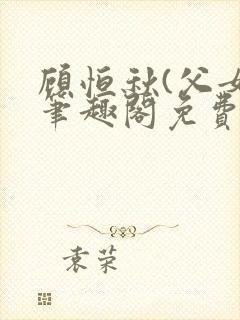 顾恒秋(父女
笔趣阁免费
袁荣